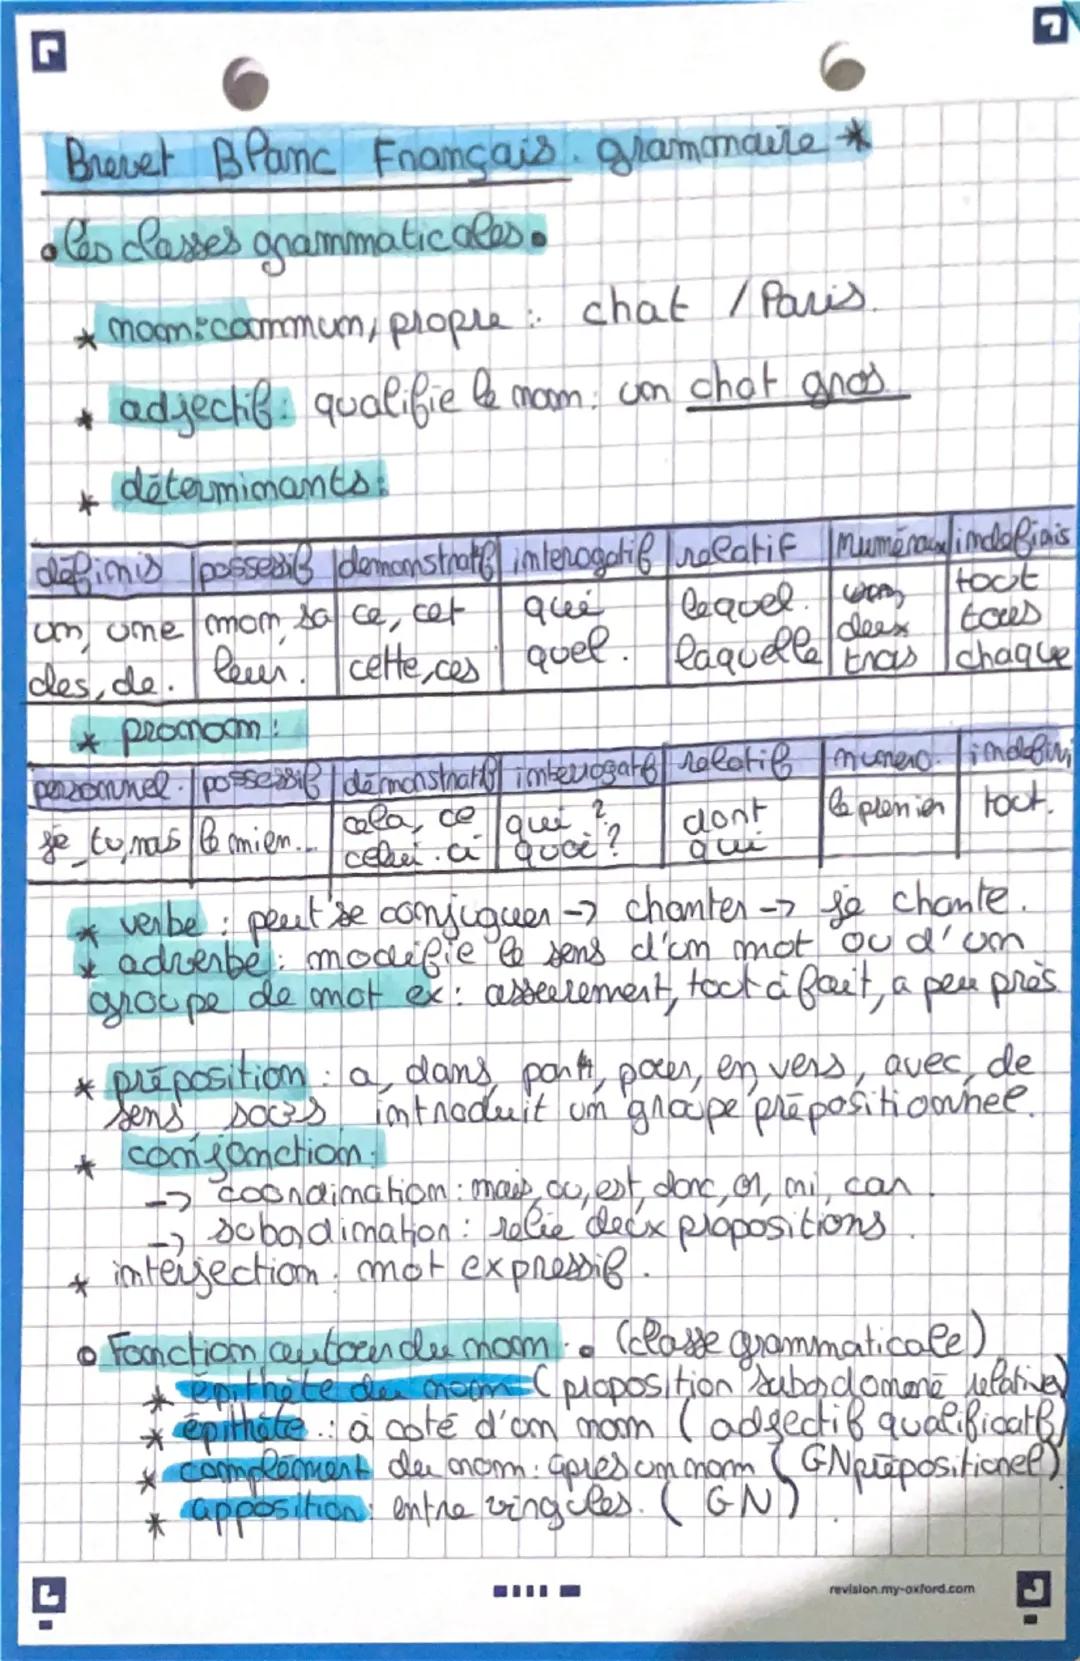 Brevet Blanc Français. grammaire *
• les classes grammaticales •
* nom: commun, propre : chat / Paris.
* adjectif: qualifie le nom: un chat gros
* déterminants:
définis | possessif | demonstratif | interogatif | relatif | Numéraux | indefinis
un, une | mon, sa | ce, cet | qui | lequel. | un, | tout
des, de. | leur. | cette, ces | quel. | laquelle | deux trois | tous chaque
* pronom:
personnel. | possessif | démonstratif | interrogatif | relatif | numero. | indefini
je, tu, nous | le mien... | cela, ce | qui ? | dont | le premier | tout.
celui.ci | quoi ? | qui
* verbe : peut se conjuguer -> chanter -> je chante.
* adverbe: modifie le sens d'un mot ou d'un
groupe de mot ex: assurement, tout à fait, a peu près
* préposition: a, dans, par, pour, en, vers, avec, de
sens, sous introduit un groupe prépositionnel.
* conjonction:
-> coordination: mais, ou, est, donc, or, ni, car.
-> subordination: relie deux propositions.
* interjection: mot expressif.
• Fonction autour du nom • (classe grammaticale)
* épithète du nom (proposition subordonné relative)
* épithète : à coté d'un nom (adjectif qualificatif)
* complément du nom: après un nom (GN prépositionel)
* apposition: entre virgules. (GN)
revision.my-oxford.com